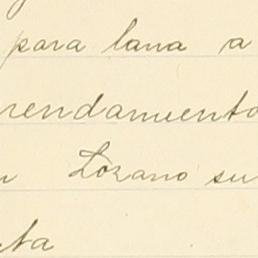 para lana a
rendamiento
Lozano su
ta